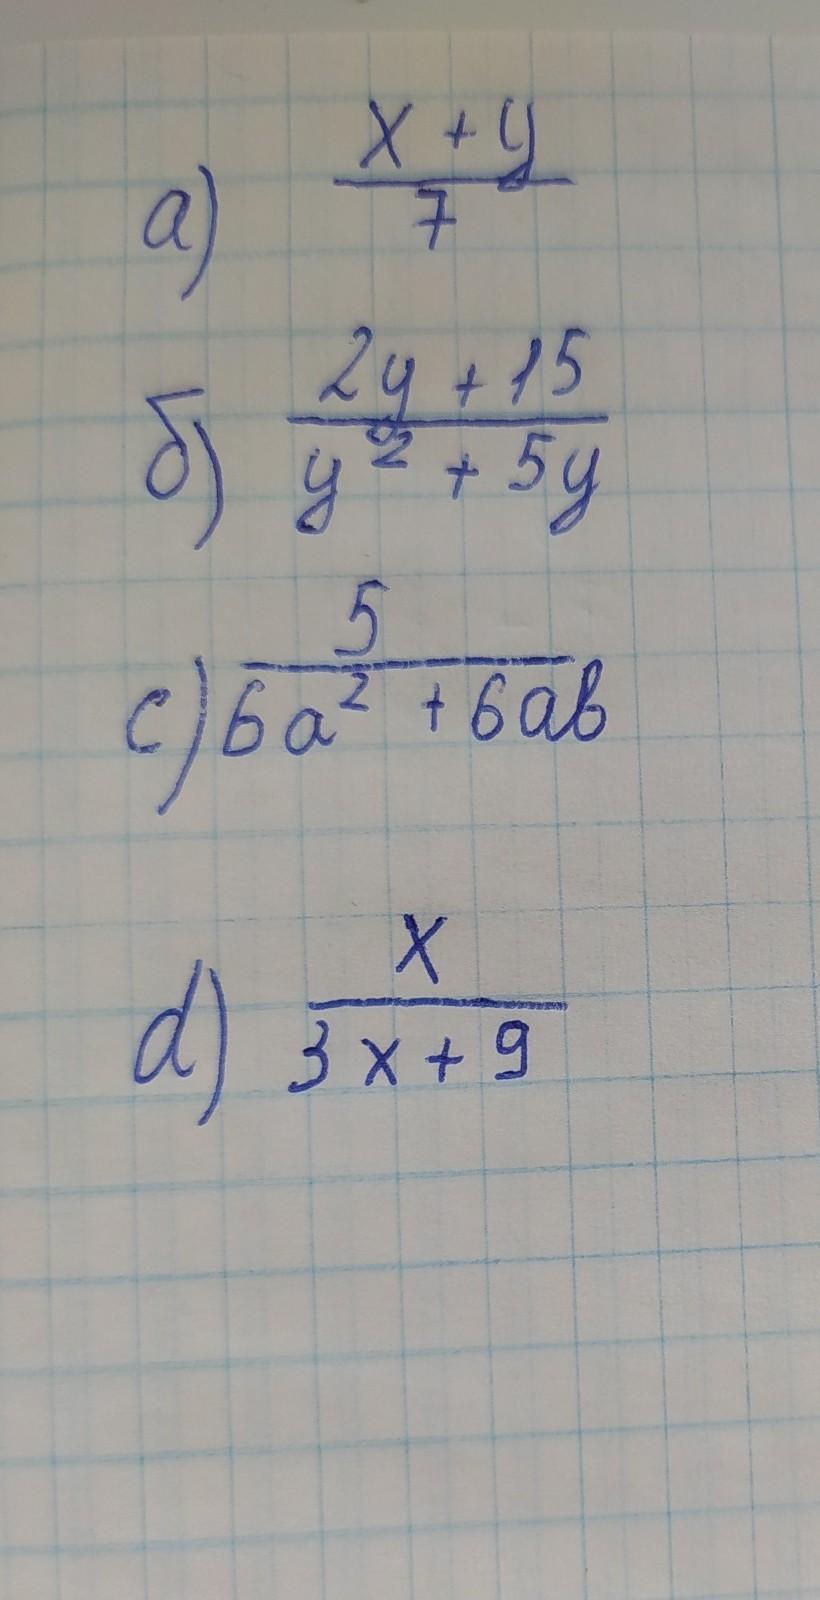 а) x + y
7
б) 2y + 15
y² + 5y
c) 5
6a² + 6ab
d) x
3x + 9